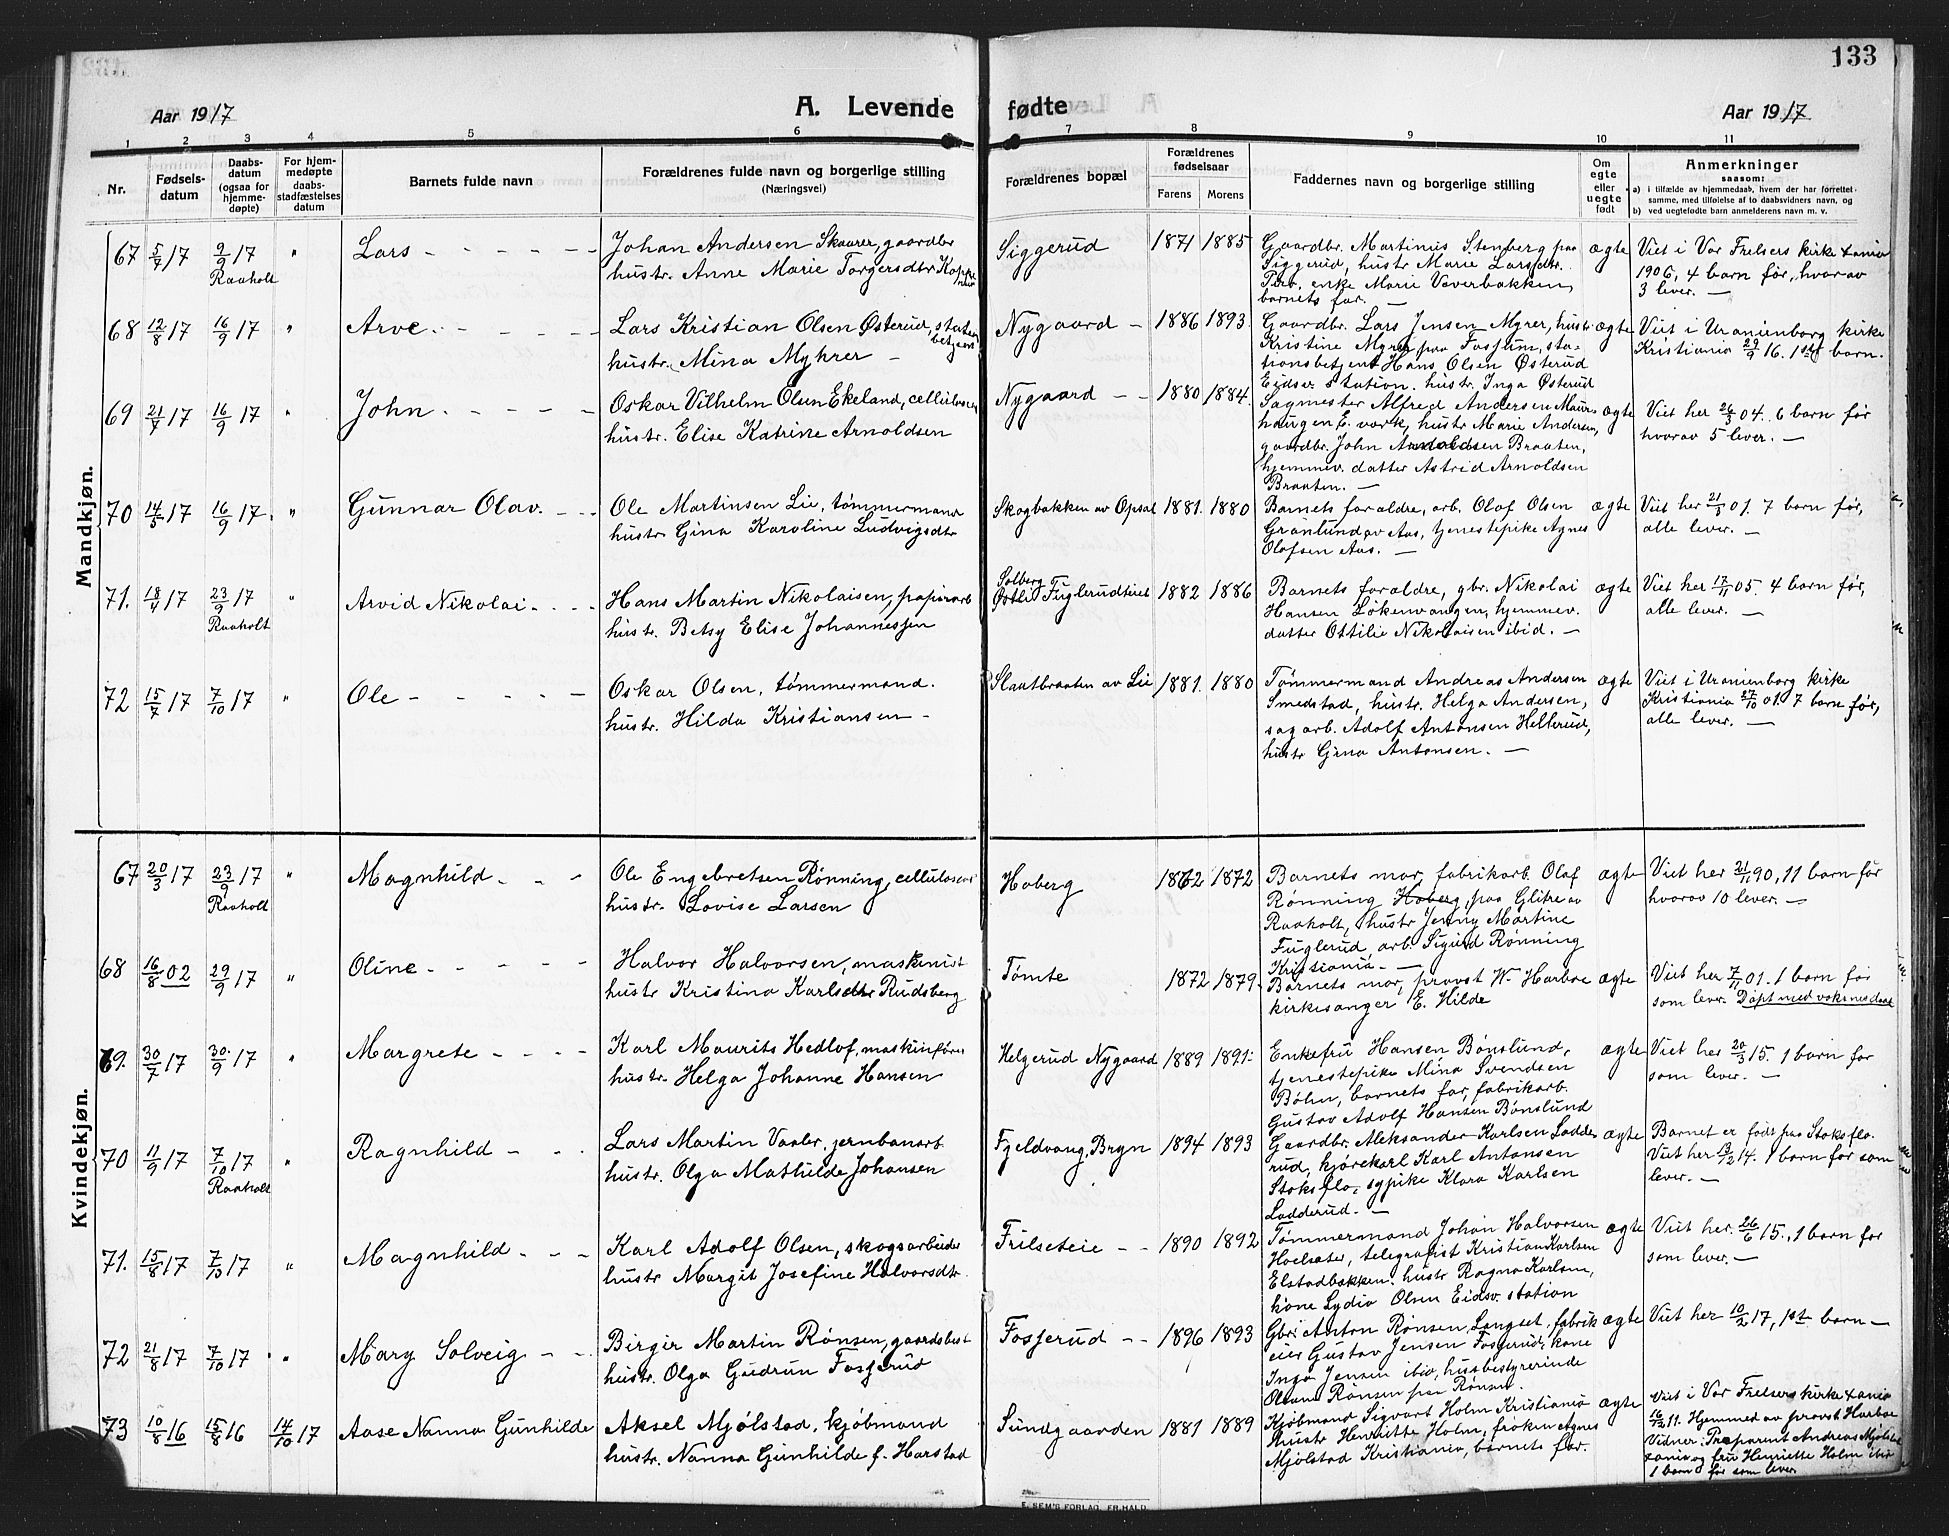 133
Aar 1917
A. Levende fødte
Aar 1917
1 2 3 4 5 6 7 8 9 10 11
Nr.
Fødsels-
datum
Daabs-
datum
(ogsaa for
hjemme-
døpte)
For hjem-
medøpte
daabs-
stadfæstelses
datum
Barnets fulde navn
Forældrenes fulde navn og borgerlige stilling
(Næringsvei)
Forældrenes bopæl
Forældrenes
fødselsaar
Farens Morens
Faddernes navn og borgerlige stilling
Om
egte
eller
uegte
født
Anmerkninger
saasom:
a) i tilfælde av hjemmedaab, hvem der har forrettet
samme, med tilføielse af to daabsvidners navn, og
b) ved uegtefødte barn anmelderens navn m. v.
Mandkjøn.
67 5/7 17 9/9 17 " Lars - - - - -
Raaholt
Johan Andersen Skaarer, gaardbr
hustr. Anne Marie Torgersdtr
Siggerud 1871 1885
Gaardbr. Martinus Stenberg paa
Siggerud, hustr Marie Larsdtr.
enke Marie Veverbakken,
barnets far. —
ægte
Viet i Vor Frelsers kirke Xania
1906, 4 barn før, hvorav
3 lever. —
68 12/8 17 16/9 17 " Arve. - - - -
Lars Kristian Olsen Østerud, stations
betjent
hustr. Mina Myhrer —
Nygaard — 1886 1893
Gaardbr. Lars Jensen Myrer, hustr
Kristine Myrer paa Fosjum, sta-
tionsbetjent Hans Olsen Østerud
Eidsv. station, hustr. Inga Østerud
ægte
Viet i Uranienborg kirke
Kristiania 29/9 16. 1ste barn.
69 21/7 17 16/9 17 " John. - - - -
Oskar Vilhelm Olsen Ekeland, cellulosearb
hustr. Elise Katrine Arnoldsen
Nygaard - - 1880 1884.
Sagmester Alfred Andersen Maur-
haugen E. verk, hustr Marie Andersen,
gaardbr. John Arnoldsen Braaten,
hjemmev. datter Astrid Arnoldsen
Braaten. —
ægte
Viet her 26/3 04. 6 barn før
hvorav 5 lever. —
70 14/5 17 16/9 17. " Gunnar Olav. - -
Ole Martinsen Lie, tømmermand
hustr. Gina Karoline Ludvigsdtr
Skogbakken av Opsal 1881. 1880
Barnets foraldre, arb. Olaf Olsen
Grønlund av Aas, tjenestepike Agnes
Olafsen Aas. —
ægte
Viet her 21/3 01. 7 barn før,
alle lever. —
71. 18/4 17 23/9 17 " Arvid Nikolai. - - -
Raaholt
Hans Martin Nikolaisen, papirarb
hustr. Betsy Elise Johannessen
Solberg
Østli Fuglerudteiet 1882 1886
Barnets foraldre, gbr. Nikolai
Hansen Løkenvangen, hjemmev.
datter Ottilie Nikolaisen ibid. —
ægte
Viet her 17/11 05. 4 barn før,
alle lever. —
72 15/7 17 7/10 17 " Ole - - - - -
Oskar Olsen, tømmermand.
hustr. Hilda Kristiansen —
Slaatbraaten av Lie 1881. 1880
Tømmermand Andreas Andersen
Smedstad, hustr. Helga Andersen,
sagarb. Adolf Antonsen Hellerud,
hustr Gina Antonsen. —
ægte
Viet i Uranienborg kirke
Kristiania 27/10 01. 7 barn før,
alle lever. —
Kvindekjøn.
67 20/3 17 23/9 17 " Magnhild - - -
Raaholt
Ole Engebretsen Rønning, cellulosearb
hustr. Lovise Larsen
Hoberg 1872 1872
Barnets mor, fabrikarb. Olaf
Rønning Hoberg, paa Glitre av
Raaholt, hustr Jenny Martine
Fuglerud, arb. Sigurd Rønning
Kristiania. —
ægte
Viet her 21/11 90, 11 barn før
hvorav 10 lever. —
68 16/8 02 29/9 17 " Oline - - - - -
Halvor Halvorsen, maskinist
hustr Kristina Karlsdtr Rudsberg
Tømte 1872 1879.
Barnets mor, provst W. Harboe
kirkesanger E. Hilde
ægte
Viet her 7/11 01. 1 barn før
som lever. Døpt med voksnes daab
69. 30/7 17 30/9 17 " Margrete - - - -
Karl Maurits Hedlof, maskinfører
hustr. Helga Johanne Hansen
Helgerud Nygaard 1889 1891.
Enkefru Hansen Bønslund,
tjenestepike Mina Svendsen
Bøhn, barnets far, fabrikarb.
Gustav Adolf Hansen Bønslund
ægte
Viet her 20/3 15. 1 barn før
som lever. —
70 11/9 17 7/10 17 " Ragnhild - - -
Raaholt
Lars Martin Vaaler, jernbanarb
hustr. Olga Mathilde Johansen
Fjeldvang, Bryn 1894 1893
Gaardbr. Aleksander Karlsen Ladde-
rud, kjørekarl Karl Antonsen
Stoksflo, sypike Klara Karlsen
Ladderud. —
ægte
Barnet er født paa Stoksflo.
Viet her 13/12 14. 1 barn før som
lever. —
71. 15/8 17 7/10 17 " Magnhild - - -
Karl Adolf Olsen, skogsarbeider
hustr Margit Josefine Halvorsdtr.
Frilseteie - - 1890 1892
Tømmermand Johan Halvorsen
Hoelsæter, telegrafist Kristian Karlsen
Elstadbakken, hustr Ragna Karlsen,
kone Lydia Olsen Eidsv. station
ægte
Viet her. 26/6 15., 1 barn før
som lever. —
72 21/8 17 7/10 17 " Mary Solveig - -
Birgir Martin Rønsen, gaardsbest
hustr. Olga Gudrun Fosserud
Fosserud - - 1896 1893
Gbr. Anton Rønsen, Langset, fabrik-
eier Gustav Jensen Fosserud, kone
Inga Jensen ibid, husbestyrerinde
Rønsen paa Rønsen.
ægte
Viet her 10/2 17, 1ste barn —
73 10/8 16 15/8 16 14/10 17 Aase Nanna Gunhilde
Aksel Mjølstad, kjøbmand
hustr. Nanna Gunhilde f. Harstad
Sundgaarden 1881 1889
Kjøbmand Sigvart Holm Kristiania
hustr Henriette Holm, frøken Agnes
Mjølstad Kristiania, barnets far.
ægte
Viet i Vor Frelsers kirke Xania
16/12 11. Hjemmed. av provst Harboe
Vidner: Præparent Andreas Mjølstad
Xania og fru Henriette Holm ibid
1 barn før som lever
E. SEM'S FORLAG, FR.HALD